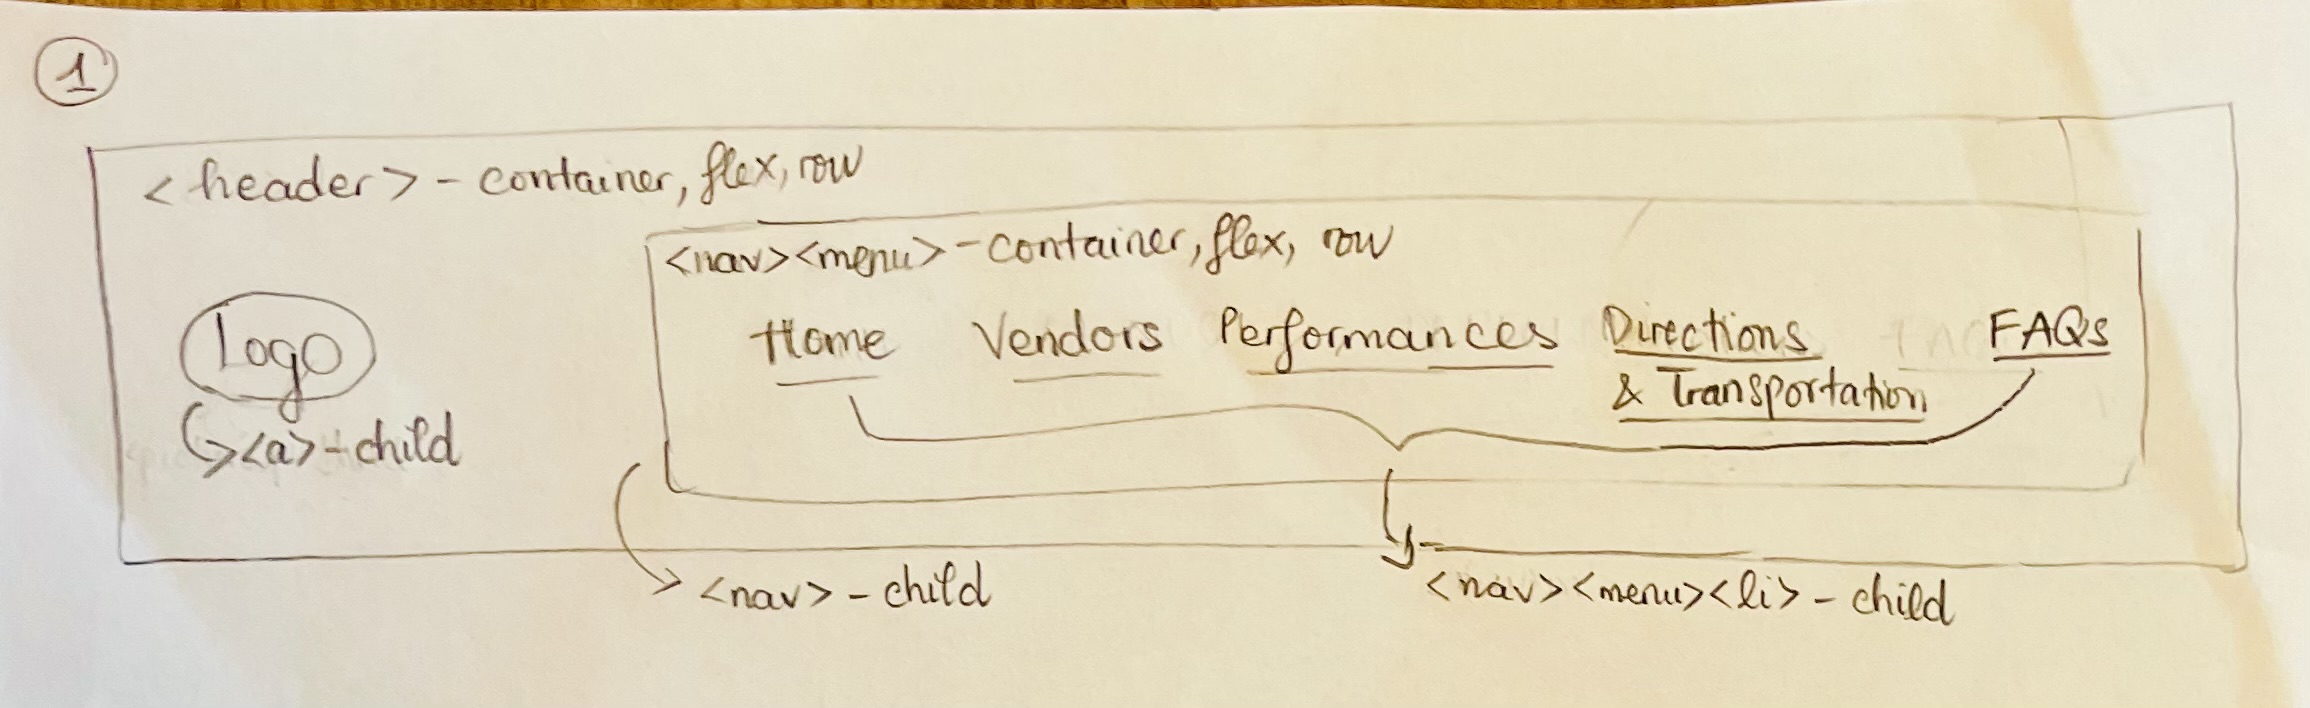 1
<header> - container, flex, row
<nav><menu> - container, flex, row
Logo
Home Vendors Performances Directions & Transportation FAQs
<a> - child
<nav> - child
<nav><menu><li> - child